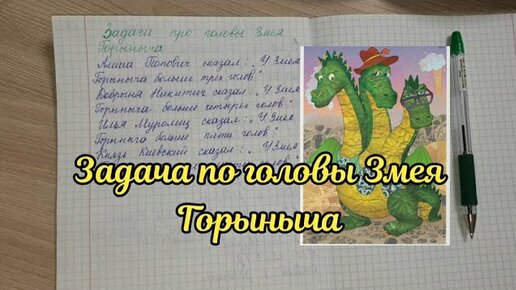 Задачи про головы Змея
Горыныча
Алеша Попович сказал: „У Змея
Горыныча больше трёх голов"
Добрыня Никитич сказал: „У Змея
Горыныча больше четырех голов"
Илья Муромец сказал: „У Змея
Горыныча больше пяти голов"
Князь Киевский сказал: „У Змея
голов"
Задача по головы Змея
Горыныча